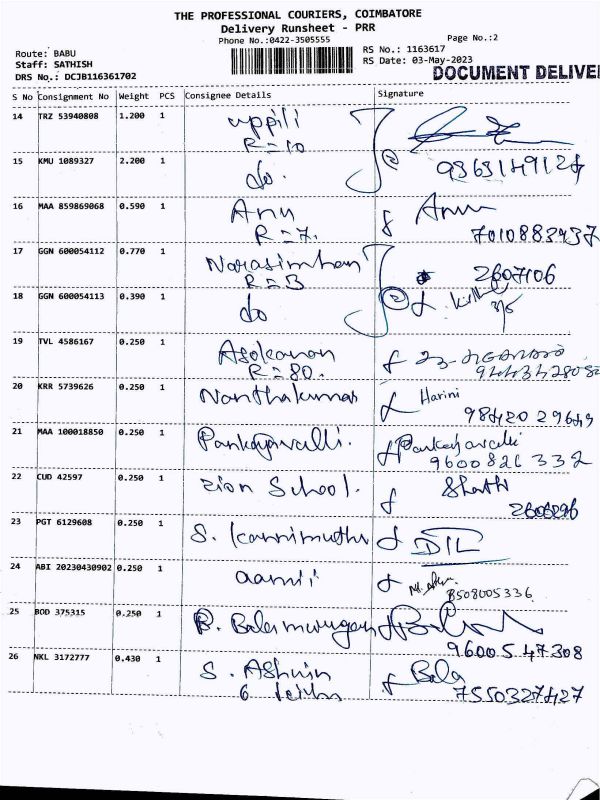 THE PROFESSIONAL COURIERS, COIMBATORE
Delivery Runsheet - PRR
Phone No.:0422-3505555
Page No.:2
Route: BABU
RS No.: 1163617
Staff: SATHISH
RS Date: 03-May-2023
DOCUMENT DELIVER
DRS No.: DCJB116361702
S No Consignment No Weight PCS Consignee Details Signature
14 TRZ 53940808 1.200 1 uppili
R=10
15 KMU 1089327 2.200 1 do. 2
16 MAA 859869068 0.590 1 Anu Anu
R=7. 7010883937
17 GGN 600054112 0.770 1 Narasimhan 2607106
R=3
18 GGN 600054113 0.390 1 do 2
19 TVL 4586167 0.250 1 Asokanan
R=80.
20 KRR 5739626 0.250 1 Nanthakumar Harini
21 MAA 100018850 0.250 1 Pankajavalli. Pankajavalli
9600826 332
22 CUD 42597 0.250 1 Zion School. Shathi
23 PGT 6129608 0.250 1 S. Kannimuthu DIL
24 ABI 20230430902 0.250 1 aamii
8508005336
25 BOD 375315 0.250 1 B. Balamurugan
96005 47308
26 NKL 3172777 0.430 1 S. Ashwin Bala
6 7550327427